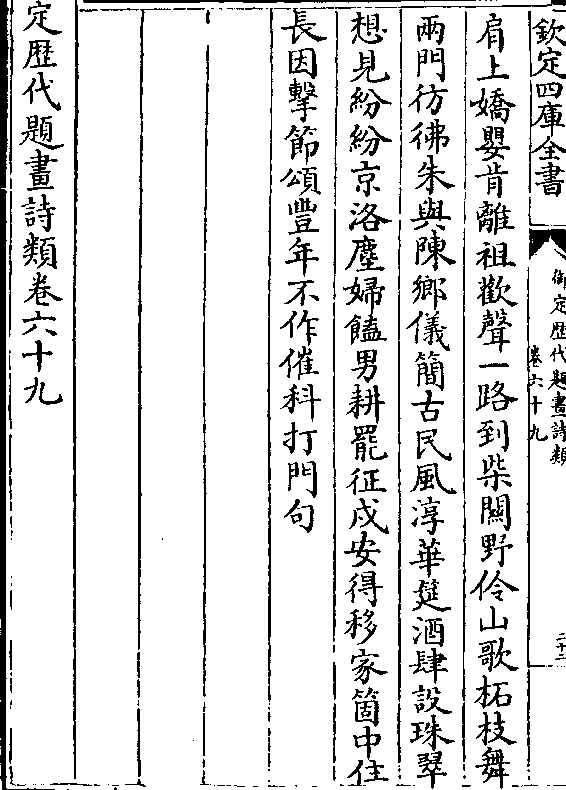 欽定四庫全書
御定歴代題畫詩類
卷六十九
二十二
肩上嬌嬰肯離祖歡聲一路到柴闗野伶山歌柘枝舞
兩門彷彿朱與陳鄉儀簡古民風淳華筵酒肆設珠翠
想見紛紛京洛塵婦饁男耕罷征戍安得移家箇中住
長因擊節頌豐年不作催科打門句
定歴代題畫詩類卷六十九